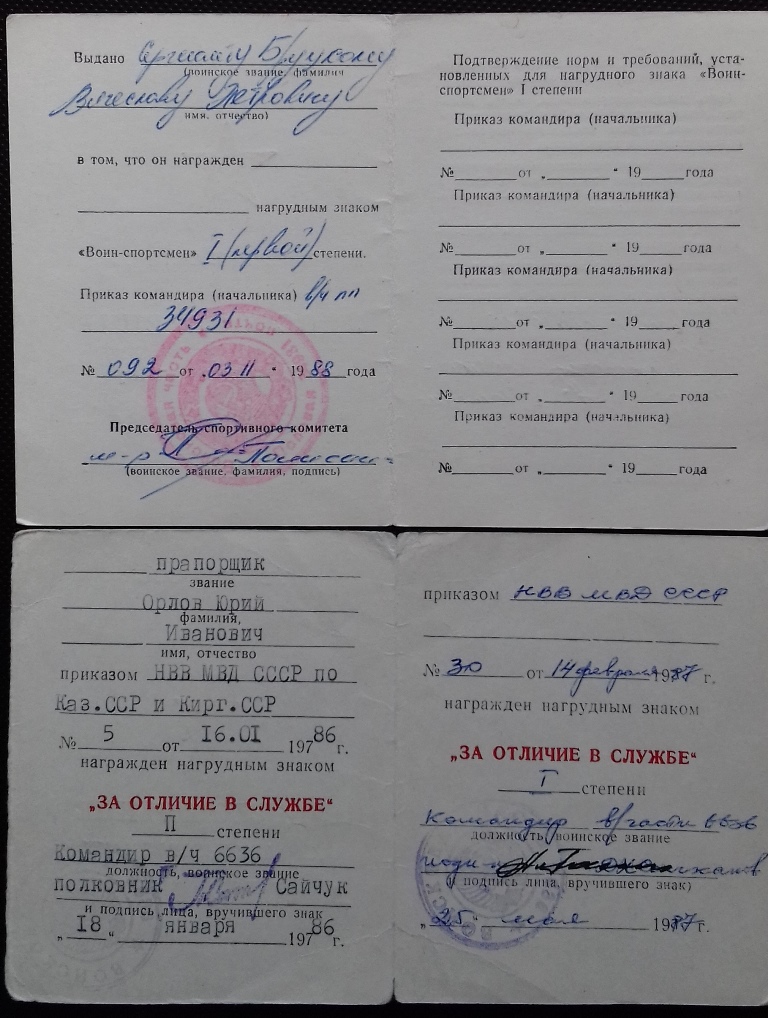 Выдано
(воинское звание, фамилия
Вячеславу Петровичу
имя, отчество)
в том, что он награжден
нагрудным знаком
„Воин-спортсмен" I (первой) степени.
Приказ командира (начальника) в/ч пп
34931
№ 092 от „03 11 " 1988 года
Председатель спортивного комитета
м-р
(воинское звание, фамилия, подпись)
Подтверждение норм и требований, уста-
новленных для нагрудного знака «Воин-
спортсмен» I степени
Приказ командира (начальника)
№ от „ " 19 года
Приказ командира (начальника)
№ от „ " 19 года
Приказ командира (начальника)
№ от „ " 19 года
Приказ командира (начальника)
№ от „ " 19 года
Приказ командира (начальника)
№ от „ " 19 года
прапорщик
звание
Орлов Юрий
фамилия,
Иванович
имя, отчество
приказом НВВ МВД СССР по
Каз.ССР и Кирг.ССР
№ 5 от 16.01 19786 г.
награжден нагрудным знаком
„ЗА ОТЛИЧИЕ В СЛУЖБЕ"
II степени
Командир в/ч 6636
должность, воинское звание
полковник Сайчук
и подпись лица, вручившего знак
„ 18 " января 19786 г.
приказом НВВ МВД СССР
№ 30 от 14 февраля 1987 г.
награжден нагрудным знаком
„ЗА ОТЛИЧИЕ В СЛУЖБЕ"
I степени
Командир в/части 6636
должность, воинское звание
(и подпись лица, вручившего знак)
„25" мая 1987 г.